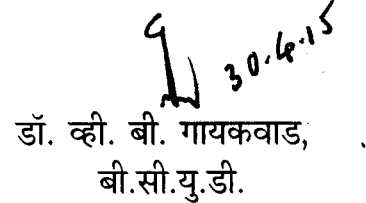 30.4.15
डॉ. व्ही. बी. गायकवाड,
बी.सी.यु.डी.